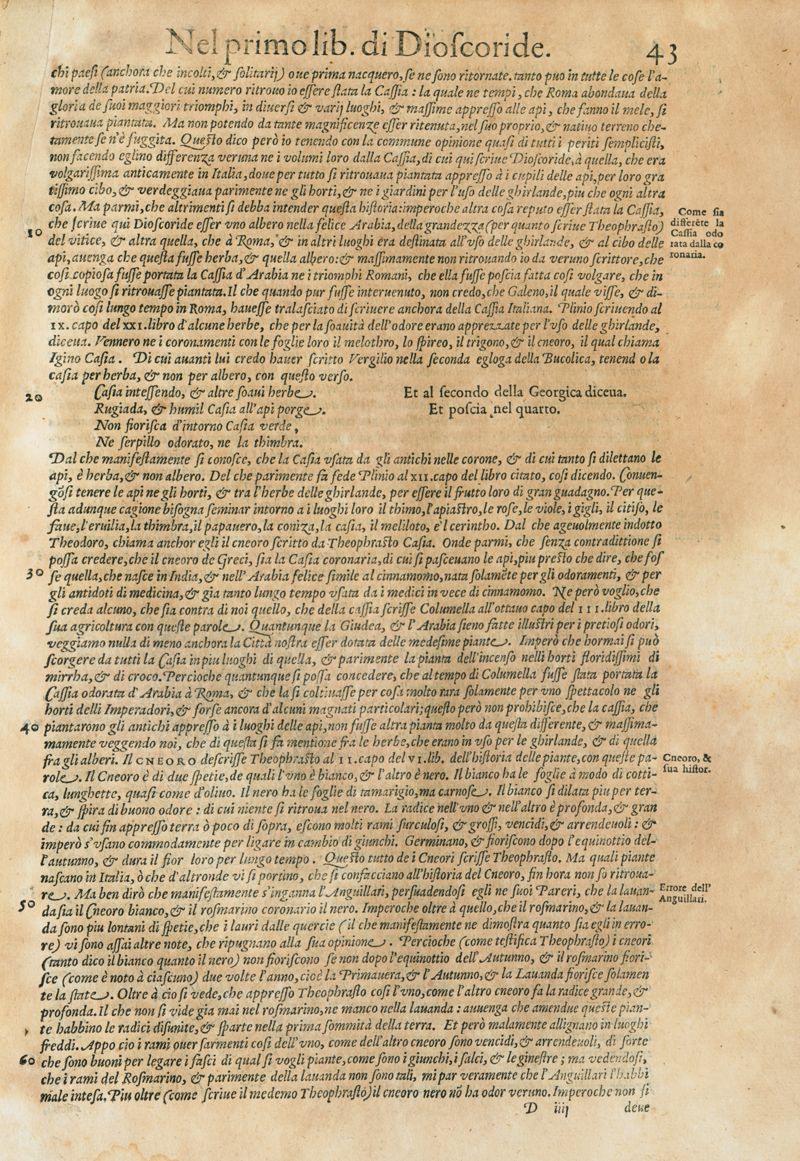 Nel primo lib. di Dioſcoride. 43
chi paeſi (anchora che incolti, & ſolitarij) oue prima nacquero, ſe ne ſono ritornate. tanto puo in tutte le coſe l'a-
more della patria. Del cui numero ritrouo io eſſere ſtata la Caſſia: la quale ne tempi, che Roma abondaua della
gloria de ſuoi maggiori triomphi, in diuerſi & varij luoghi, & maſſime appreſſo alle api, che fanno il mele, ſi
ritrouaua piantata. Ma non potendo da tante magnificenze eſſer ritenuta, nel ſuo proprio, & natiuo terreno che-
tamente ſe n'è fuggita. Queſto dico però io tenendo con la commune opinione quaſi di tutti i periti ſempliciſti,
non facendo eglino differenza veruna ne i volumi loro dalla Caſſia, di cui qui ſcriue Dioſcoride, à quella, che era
volgariſſima anticamente in Italia, doue per tutto ſi ritrouaua piantata appreſſo à i cupili delle api, per loro gra
tiſſimo cibo, & verdeggiaua parimente ne gli horti, & ne i giardini per l'uſo delle ghirlande, piu che ogni altra
coſa. Ma parmi, che altrimenti ſi debba intender queſta hiſtoria: imperoche altra coſa reputo eſſer ſtata la Caſſia,
che ſcriue qui Dioſcoride eſſer vno albero nella felice Arabia, della grandezza (per quanto ſcriue Theophraſto)
Come ſia
differẽte la
Caſſia odo
rata dalla co
ronaria.
10
del vitice, & altra quella, che à Roma, & in altri luoghi era deſtinata all'vſo delle ghirlande, & al cibo delle
api, auenga che queſta fuſſe herba, & quella albero: & maſſimamente non ritrouando io da veruno ſcrittore, che
coſi copioſa fuſſe portata la Caſſia d'Arabia ne i triomphi Romani, che ella fuſſe poſcia fatta coſi volgare, che in
ogni luogo ſi ritrouaſſe piantata. Il che quando pur fuſſe interuenuto, non credo, che Galeno, il quale viſſe, & di-
morò coſi lungo tempo in Roma, haueſſe tralaſciato di ſcriuere anchora della Caſſia Italiana. Plinio ſcriuendo al
IX. capo del XXI. libro d'alcune herbe, che per la ſoauità dell'odore erano apprezzate per l'vſo delle ghirlande,
diceua. Vennero ne i coronamenti con le foglie loro il melothro, lo ſpireo, il trigono, & il cneoro, il qual chiama
Igino Caſia. Di cui auanti lui credo hauer ſcritto Vergilio nella ſeconda egloga della Bucolica, tenendo la
caſia per herba, & non per albero, con queſto verſo.
20
Caſia inteſſendo, & altre ſoaui herbe. Et al ſecondo della Georgica diceua.
Rugiada, & humil Caſia all'api porge. Et poſcia nel quarto.
Non fioriſca d'intorno Caſia verde,
Ne ſerpillo odorato, ne la thimbra.
Dal che manifeſtamente ſi conoſce, che la Caſia vſata da gli antichi nelle corone, & di cui tanto ſi dilettano le
api, è herba, & non albero. Del che parimente fa fede Plinio al XII. capo del libro citato, coſi dicendo. Conuen-
gõſi tenere le api ne gli horti, & tra l'herbe delle ghirlande, per eſſere il frutto loro di gran guadagno. Per que-
ſta adunque cagione biſogna ſeminar intorno a i luoghi loro il thimo, l'apiaſtro, le roſe, le viole, i gigli, il citiſo, le
faue, l'eruilia, la thimbra, il papauero, la coniza, la caſia, il meliloto, e'l cerintho. Dal che ageuolmente indotto
Theodoro, chiama anchor egli il cneoro ſcritto da Theophraſto Caſia. Onde parmi, che ſenza contradittione ſi
poſſa credere, che il cneoro de Greci, ſia la Caſia coronaria, di cui ſi paſceuano le api, piu preſto che dire, che foſ
30
ſe quella, che naſce in India, & nell'Arabia felice ſimile al cinnamomo, nata ſolamẽte per gli odoramenti, & per
gli antidoti di medicina, & gia tanto lungo tempo vſata da i medici in vece di cinnamomo. Ne però voglio, che
ſi creda alcuno, che ſia contra di noi quello, che della caſſia ſcriſſe Columella all'ottauo capo del III. libro della
ſua agricoltura con queſte parole. Quantunque la Giudea, & l'Arabia ſieno fatte illuſtri per i pretioſi odori,
veggiamo nulla di meno anchora la Città noſtra eſſer dotata delle medeſime piante. Imperò che hormai ſi può
ſcorgere da tutti la Caſia in piu luoghi di quella, & parimente la pianta dell'incenſo nelli horti floridiſſimi di
mirrha, & di croco. Percioche quantunque ſi poſſa concedere, che al tempo di Columella fuſſe ſtata portata la
Caſſia odorata d'Arabia à Roma, & che la ſi coltiuaſſe per coſa molto rara ſolamente per vno ſpettacolo ne gli
horti delli Imperadori, & forſe ancora d'alcuni magnati particolari; queſto però non prohibiſce, che la caſſia, che
40
piantarono gli antichi appreſſo à i luoghi delle api, non fuſſe altra pianta molto da queſta differente, & maſſima-
mamente veggendo noi, che di queſta ſi fa mentione fra le herbe, che erano in vſo per le ghirlande, & di quella
fra gli alberi. Il CNEORO deſcriſſe Theophraſto al II. capo del VI. lib. dell'hiſtoria delle piante, con queſte pa-
role. Il Cneoro è di due ſpetie, de quali l'vno è bianco, & l'altro è nero. Il bianco ha le foglie à modo di cotti-
Cneoro, &
ſua hiſtor.
ca, lunghette, quaſi come d'oliuo. Il nero ha le foglie di tamarigio, ma carnoſe. Il bianco ſi dilata piu per ter-
ra, & ſpira di buono odore: di cui niente ſi ritroua nel nero. La radice nell'vno & nell'altro è profonda, & gran
de: da cui fin appreſſo terra ò poco di ſopra, eſcono molti rami ſurculoſi, & groſſi, vencidi, & arrendeuoli: &
imperò s'vſano commodamente per ligare in cambio di giunchi. Germinano, & fioriſcono dopo l'equinottio del-
l'autunno, & dura il fior loro per lungo tempo. Queſto tutto de i Cneori ſcriſſe Theophraſto. Ma quali piante
naſcano in Italia, ò che d'altronde vi ſi portino, che ſi confacciano all'hiſtoria del Cneoro, fin hora non ſo ritroua-
re. Ma ben dirò che manifeſtamente s'inganna l'Anguillari, perſuadendoſi egli ne ſuoi Pareri, che la lauan-
Errore dell'
Anguillari.
50
da ſia il Cneoro bianco, & il roſmarino coronario il nero. Imperoche oltre à quello, che il roſmarino, & la lauan-
da ſono piu lontani di ſpetie, che i lauri dalle quercie (il che manifeſtamente ne dimoſtra quanto ſia egli in erro-
re) vi ſono aſſai altre note, che ripugnano alla ſua opinione. Percioche (come teſtifica Theophraſto) i cneori
(tanto dico il bianco quanto il nero) non fioriſcono ſe non dopo l'equinottio dell'Autunno, & il roſmarino fiori-
ſce (come è noto à ciaſcuno) due volte l'anno, cioè la Primauera, & l'Autunno, & la Lauanda fioriſce ſolamen
te la ſtate. Oltre à ciò ſi vede, che appreſſo Theophraſto coſi l'vno, come l'altro cneoro fa la radice grande, &
profonda. il che non ſi vide gia mai nel roſmarino, ne manco nella lauanda: auuenga che amendue queſte pian-
te habbino le radici diſunite, & ſparte nella prima ſommità della terra. Et però malamente allignano in luoghi
freddi. Appo ciò i rami ouer ſarmenti coſi dell'vno, come dell'altro cneoro ſono vencidi, & arrendeuoli, di ſorte
60
che ſono buoni per legare i faſci di qual ſi vogli piante, come ſono i giunchi, i ſalci, & le gineſtre; ma vedendoſi,
che i rami del Roſmarino, & parimente della lauanda non ſono tali, mi par veramente che l'Anguillari l'habbi
male inteſa. Piu oltre (come ſcriue il medemo Theophraſto) il cneoro nero nõ ha odor veruno. Imperoche non ſi
D iiij deue